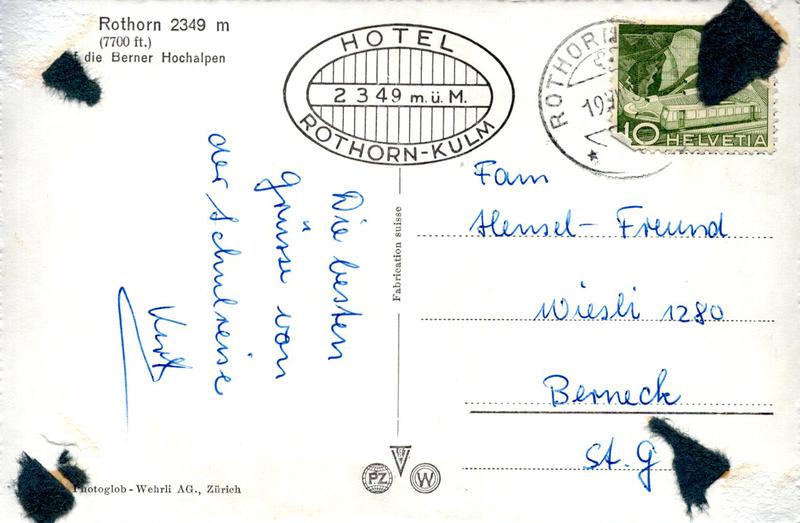 Rothorn 2349 m
(7700 ft.)
die Berner Hochalpen
HOTEL
2349 m.ü.M.
ROTHORN-KULM
ROTHORN
10 HELVETIA
Die besten
Grüsse von
der Schulreise
Kurt
Fabrication suisse
Fam
Hensel-Freund
Wiesli 1280
Berneck
St. G
PZ
W
Photoglob-Wehrli AG., Zürich